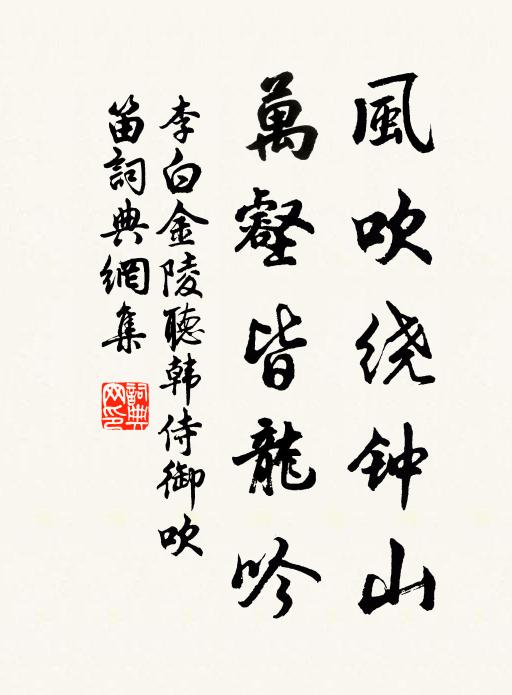 風吹绕钟山
萬壑皆龍吟
李白金陵聽韩侍御吹
笛詞典網集
詞典
网印